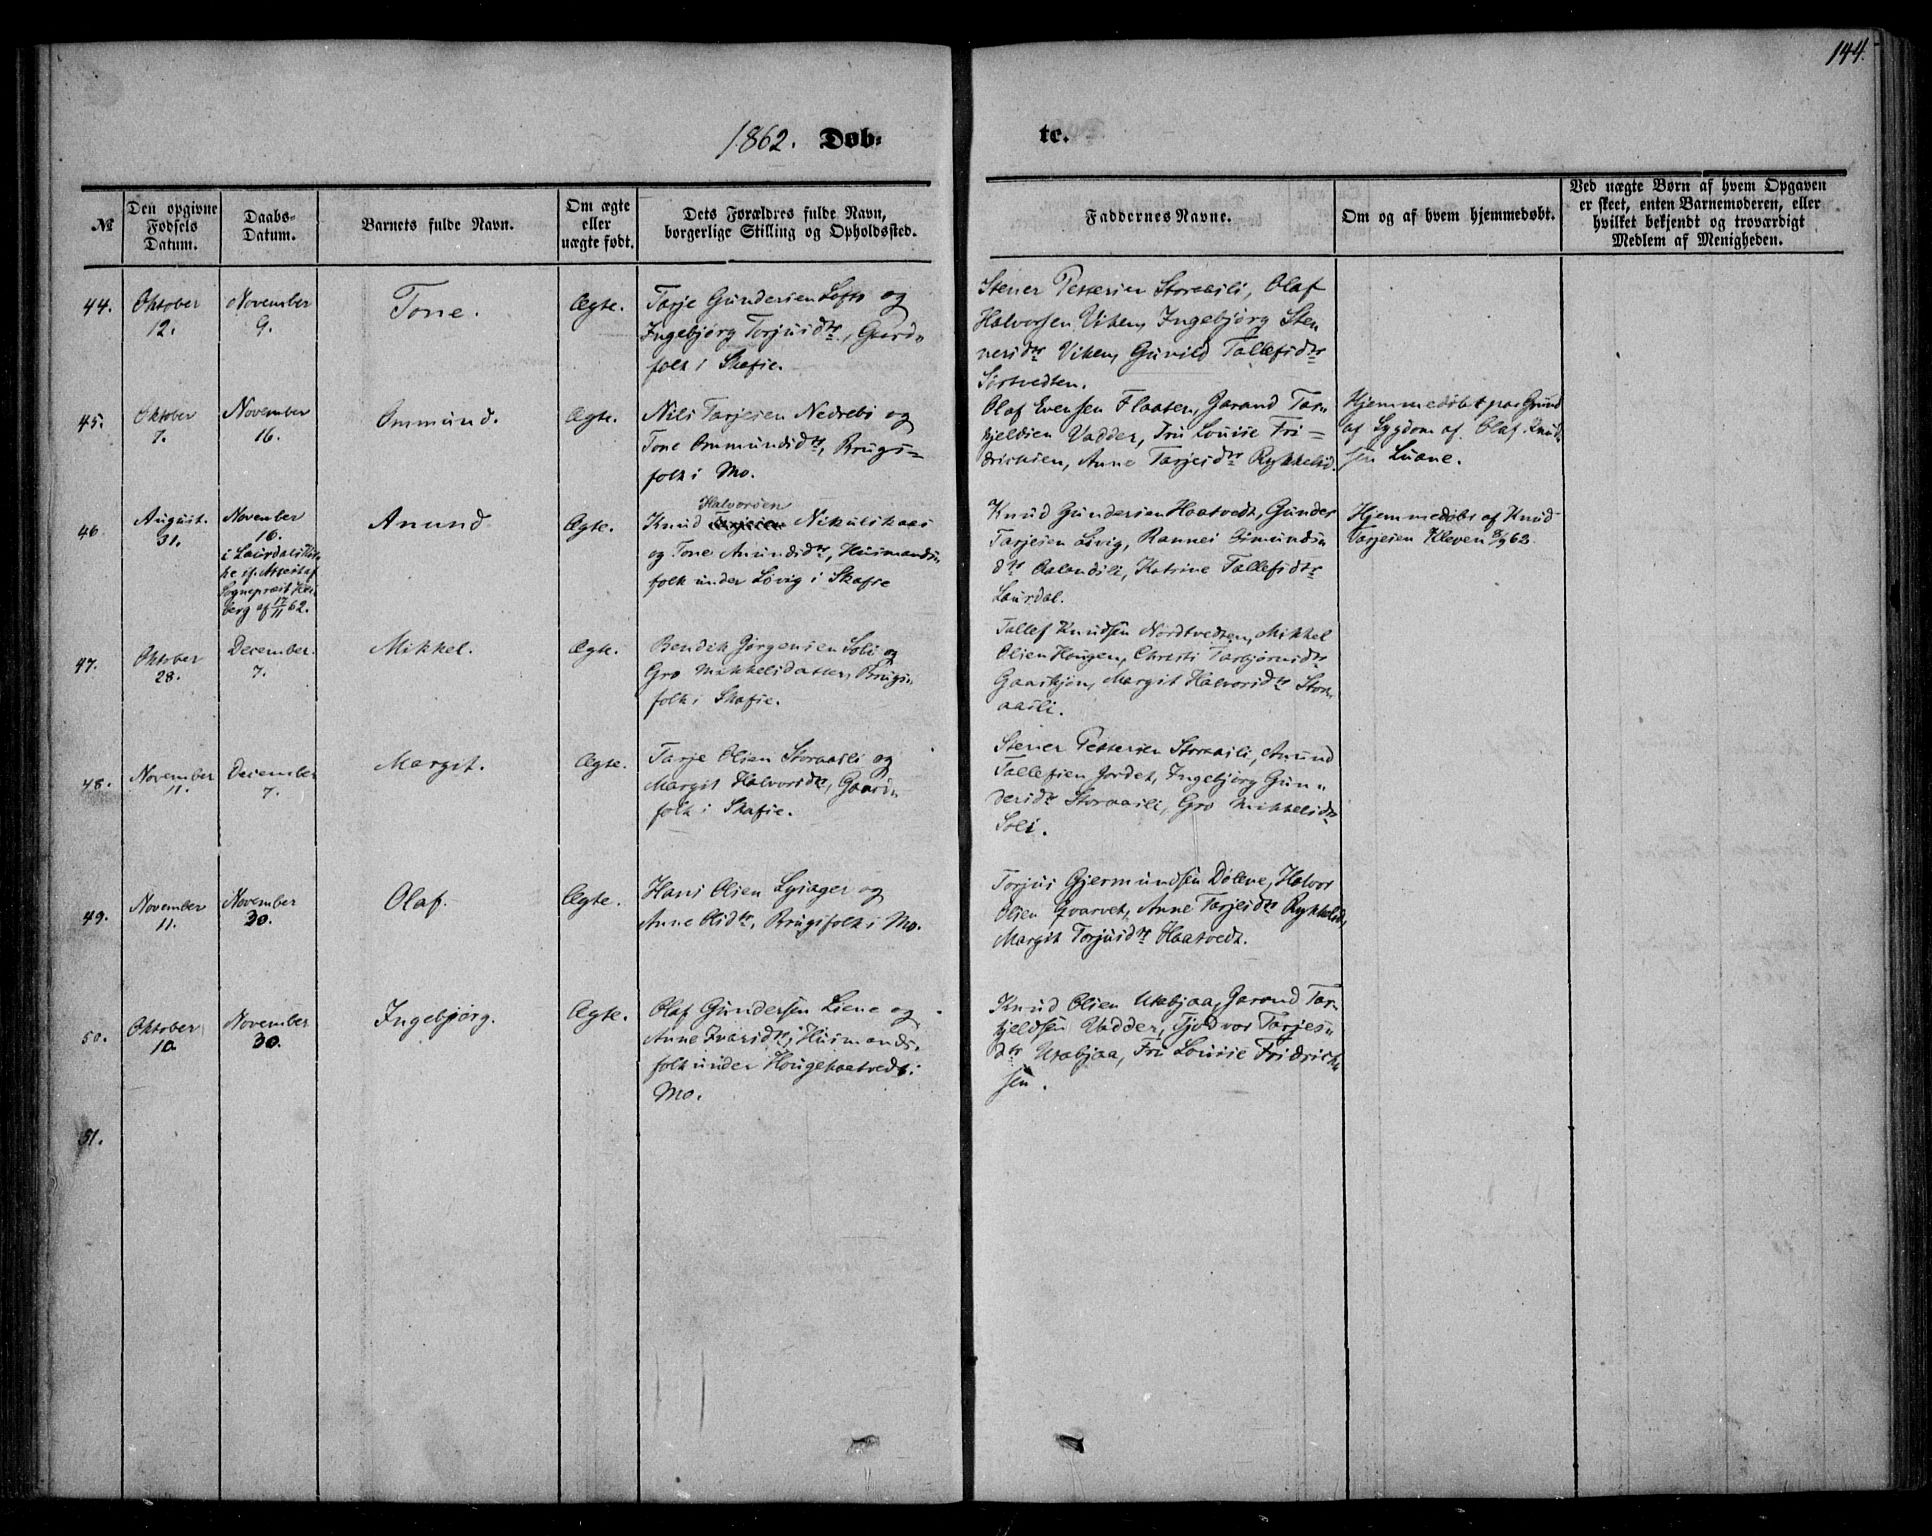 144.
1862. Døb-
te.
№
Den opgivne
Fødsels
Datum.
Daabs-
Datum.
Barnets fulde Navn.
Om ægte
eller
uægte født.
Dets Forældres fulde Navn,
borgerlige Stilling og Opholdssted.
Faddernes Navne.
Om og af hvem hjemmedøbt.
Ved uægte Børn af hvem Opgaven
er skeet, enten Barnemoderen, eller
hvilket bekjendt og troværdigt
Medlem af Menigheden.
44.
Oktober
12.
November
9.
Tone.
Ægte.
Tarje Gundersen Lofts og
Ingebjørg Torjusdtr, Gaard-
folk i Skafse.
Stener Pettersen Storaasli, Olaf
Halvorsen Viken, Ingebjørg Sten
nersdtr Viken, Gunild Tallefsdtr
Sørtvedten.
45.
Oktober
7.
November
16.
Ommund.
Ægte.
Nils Tarjesen Nedrebø og
Tone Ommundsdtr, Brugs-
folk i Mo.
Olaf Evensen Flaaten, Jarand Tar-
kjeldsen Vadder, Fru Louise Fri-
drichsen, Anne Tarjesdtr Rykkelid.
Hjemmedøbt paa Grund
af Sygdom af Olaf Knud-
sen Luane.
46
August.
31.
November
16.
i Laurdals Kir-
ke if. Attest af
Sognepræst
berg af 17/11 62.
Anund
Ægte.
Halvorsen
Knud Tarjesen Nikulskaas
og Tone Anundsdtr, Husmands-
folk under Løvig i Skafse
Knud Gundersen Haatvedt, Gunder
Tarjesen Løvig, Rannei Gimunds-
dtr Aalandsli, Katrine Tallefsdtr
Laurdal.
Hjemmedøbt af Knud
Tarjesen Kleven 8/9 62.
47.
Oktober
28.
December.
7.
Mikkel.
Ægte.
Bendik Jørgensen Soli og
Gro Mikkelsdatter, Brugs-
folk i Skafse.
Tallef Knudsen Nordtvedten, Mikkel
Olsen Haugen, Christi Tarbjørnsdtr
Gaaskjøn, Margit Halvorsdtr Stor-
aasli.
48.
November
11.
December
7.
Margit.
Ægte.
Tarje Olsen Storaasli og
Margit Halvorsdtr, Gaard-
folk i Skafse.
Stener Pettersen Storaasli, Amund
Tallefsen Jordet, Ingebjørg Gun-
dersdtr Storaasli, Gro Mikkelsdtr
Soli.
49.
November
11.
November
30.
Olaf.
Ægte.
Hans Olsen Lysager og
Anne Olsdtr, Brugsfolk i Mo.
Torjus Gjermundsen Dølene, Halvor
Olsen Qvarvet, Anne Tarjesdtr Rykkelid,
Margit Torjusdtr Haatvedt.
50.
Oktober
10.
November
30.
Ingebjørg.
Ægte.
Olaf Gundersen Liene og
Anne Ivarsdtr, Husmands-
folk under Hougehaatvedt i
Mo.
Knud Olsen Utabjaa, Jarand Tar-
kjeldsen Vadder, Tjodvor Tarjes-
dtr Utabjaa, Fru Louise Fridrich-
sen.
51.